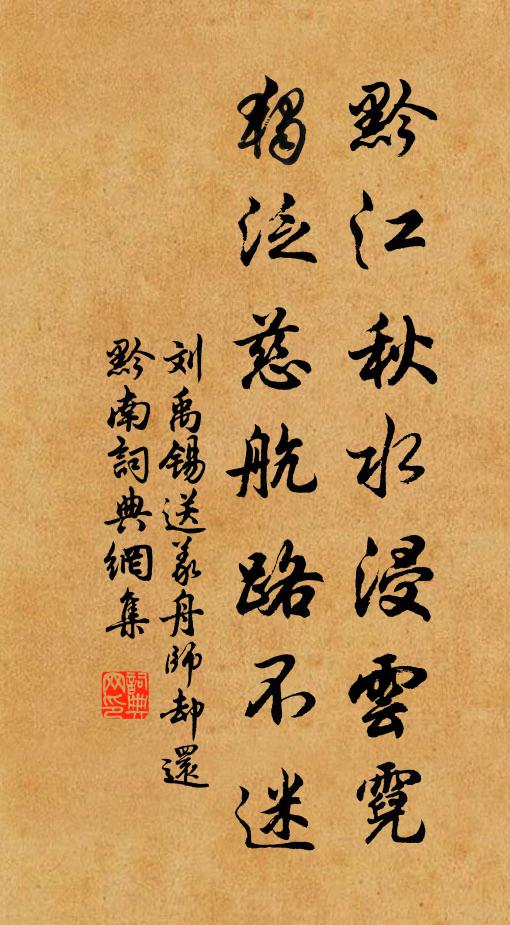 黔江秋水浸雲霓
獨泛慈航路不迷
刘禹锡送義舟師却還
黔南詞典網集
詞典网印